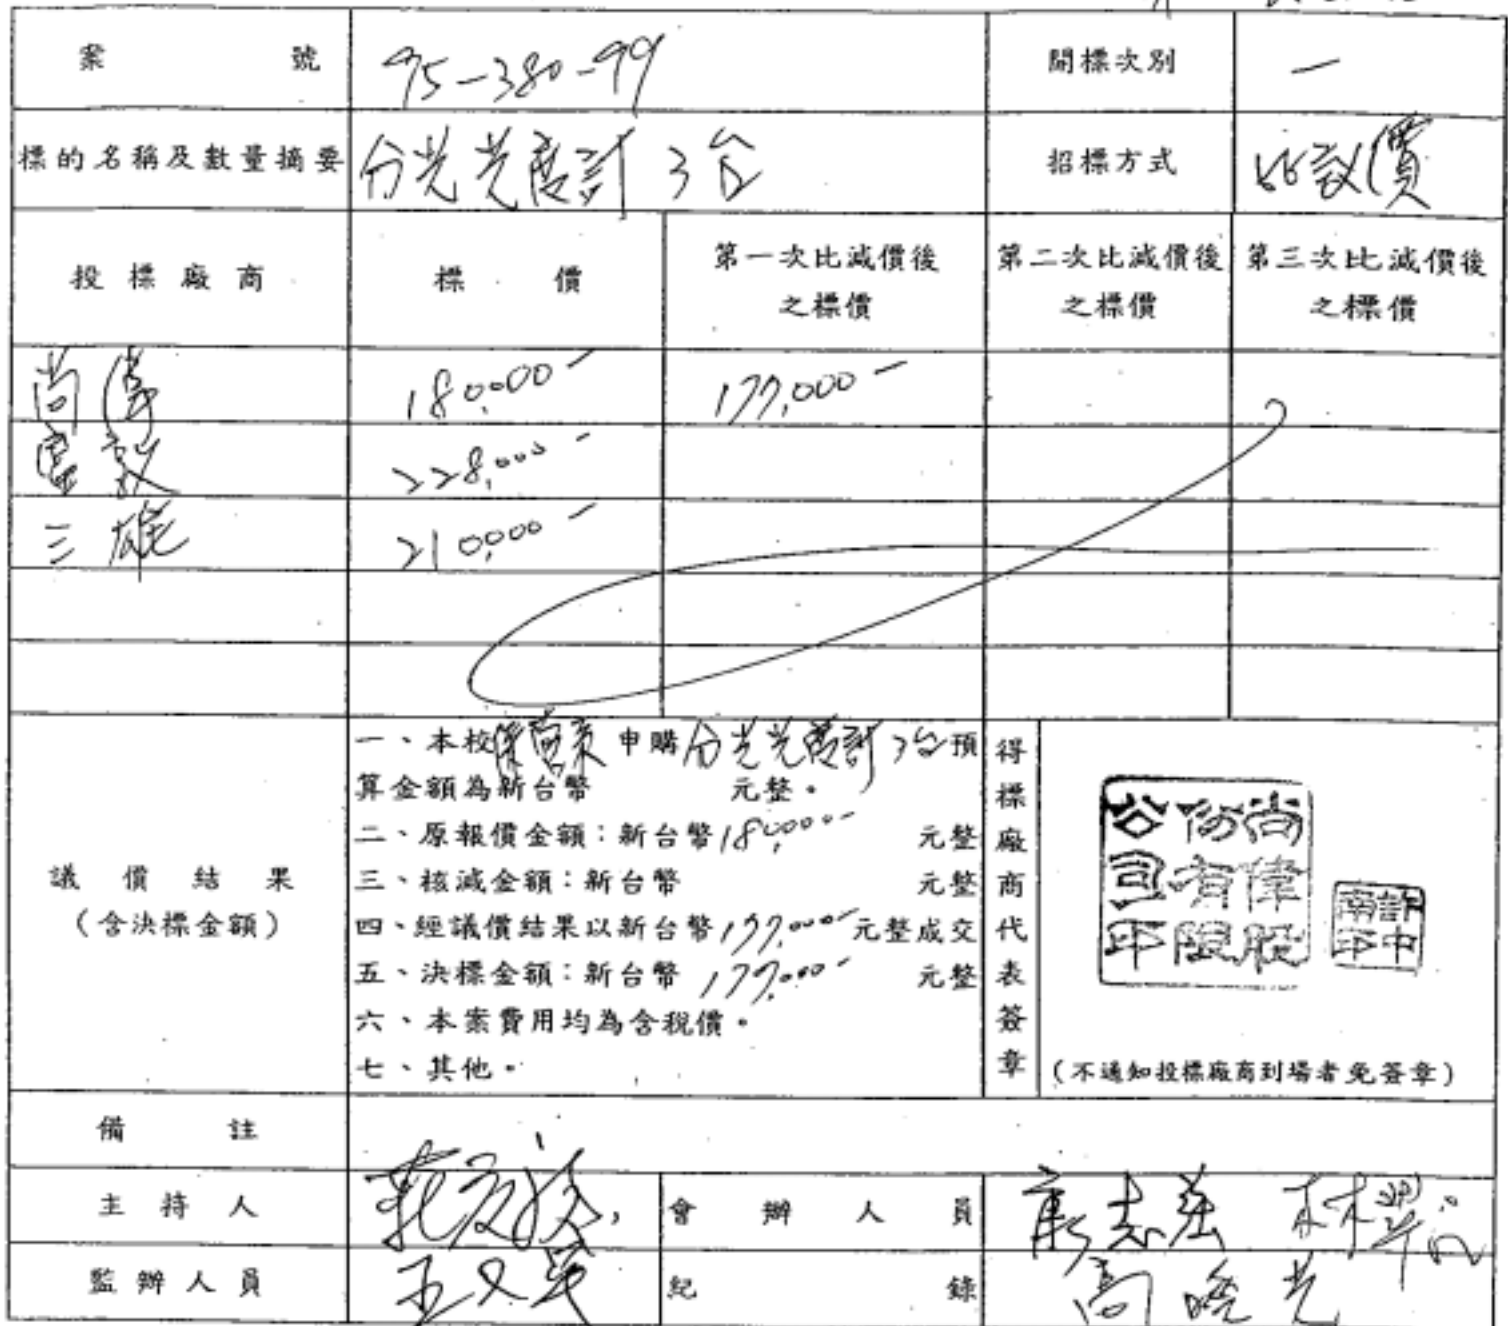 案號 95-380-99 開標次別 一
標的名稱及數量摘要 分光光度計 3台 招標方式 比議價
投標廠商 標價 第一次比減價後之標價 第二次比減價後之標價 第三次比減價後之標價
尚偉 180,000- 177,000-
228,000-
三雄 210,000-
議價結果
(含決標金額)
一、本校 申購分光光度計3台預
算金額為新台幣 元整。
二、原報價金額：新台幣180,000- 元整
三、核減金額：新台幣 元整
四、經議價結果以新台幣177,000-元整成交
五、決標金額：新台幣 177,000- 元整
六、本案費用均為含稅價。
七、其他。
得標廠商代表簽章
尚偉股
份有限
公司印
許中
南印
(不通知投標廠商到場者免簽章)
備註
主持人 會辦人員
監辦人員 王文 紀錄 高